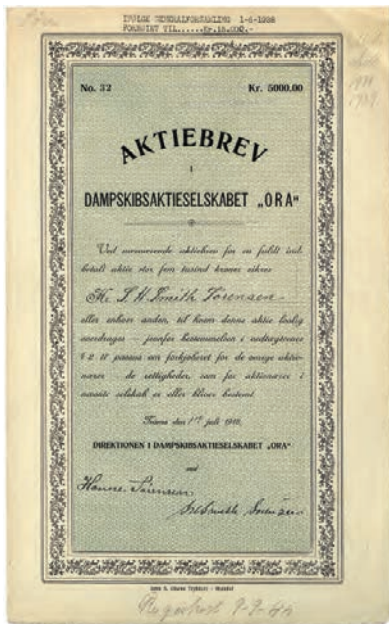 IFØLGE GENERALFORSAMLING 1-6-1938
FORHØIET TIL......KR.15.000.-
No. 32 Kr. 5000.00
AKTIEBREV
I
DAMPSKIBSAKTIESELSKABET „ORA“
Ved nærværende aktiebrev for en fuldt ind-
betalt aktie stor fem tusind kroner sikres
Hr. S. H. Smith Sørensen
eller enhver anden, til hvem denne aktie lovlig
overdrages – jevnfør bestemmelsen i vedtægternes
§ 2 IV passus om forkjøbsret for de øvrige aktio-
nærer – de rettigheder, som for aktionærer i
nævnte selskab er eller bliver bestemt.
den 1ste juli 1918.
DIREKTIONEN I DAMPSKIBSAKTIESELSKABET „ORA“
ved
Hanna Sørensen
Smith Sørensen